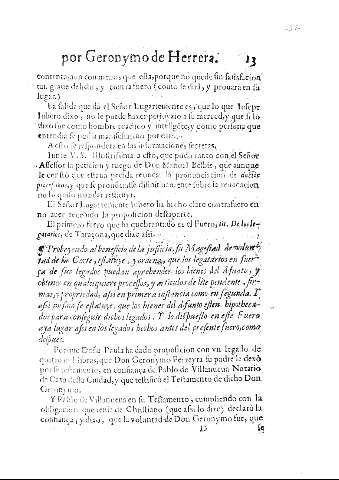 por Geronymo de Herrera. 13
contento, aun con menos, que ella, porque no quede sin satisfacion
tan graue delicto, y contrafuero (como se dirà, y prouarà en su
lugar.)
La salida que dà el Señor Lugarteniente es, que lo que Iosepe
Ilibero dixo, no le puede hazer perjuyzio a su merced, y que si lo
dixo fue como hombre practico y inteligẽte, y como persona que
entendia se podia manifestarlo por este.
A esto se responderà en las informaciones secretas.
Iunte V. S. Illustrissima a esto, que pudo tanto con el Señor
Assessor la peticion y ruego de Don Manuel Bellvis, que aunque
le constò que estaua pedida reuista la pronunciacion de
y que se pronunciasse difinitiuamente sobre la reuocacion
no lo quiso mandar reseruar.
El Señor Lugarteniente Iubero ha hecho claro contrafuero en
no auer recebido la proposicion desaparte.
El primero fuero que ha quebrantado es el Fuero, tit. De los legatarios, de Taraçona, que dize assi.
¶ Proueyendo al beneficio de la justicia, su Magestad de voluntad
de la Corte, estatuye, y ordena, que los legatarios en fuerça
de sus legados puedan aprehender los bienes del difunto, y
obtener en qualesquiere processos, y articulos de lite pendente, firmas,
y propriedad, assi en primera instancia como en segunda. I
assi mismo se estatuye, que los bienes del difunto esten hipothecados
para conseguir dichos legados. Y lo dispuesto en este Fuero
aya lugar assi en los legados hechos antes del presente fuero, como
despues.
Porque Doña Paula ha dado proposicion con vn legado de
quatro mil libras, que Don Geronymo Ferreyra su padre le dexò
por su testamento, en confiança de Pablo de Villanueua Notario
de Caxa desta Ciudad, y que testificò el Testamento de dicho Don
Geronymo.
Y Pablo de Villanueua en su Testamento, cumpliendo con la
obligacion que tenia de Christiano (que assi lo dize) declarò la
confiança, y dixo, que la voluntad de Don Geronymo fue, que